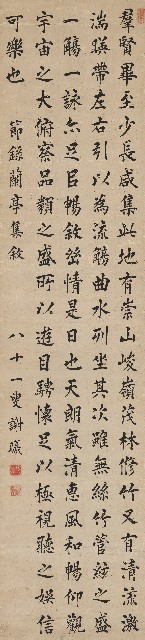 羣賢畢至少長咸集此地有崇山峻嶺茂林修竹又有清流激
湍暎帶左右引以為流觴曲水列坐其次雖無絲竹管絃之盛
一觴一詠亦足㠯暢敘幽情是日也天朗氣清惠風和暢仰觀
宇宙之大俯察品類之盛所以遊目騁懷足以極視聽之娛信
可樂也 節錄蘭亭集敘 八十一叟謝曦